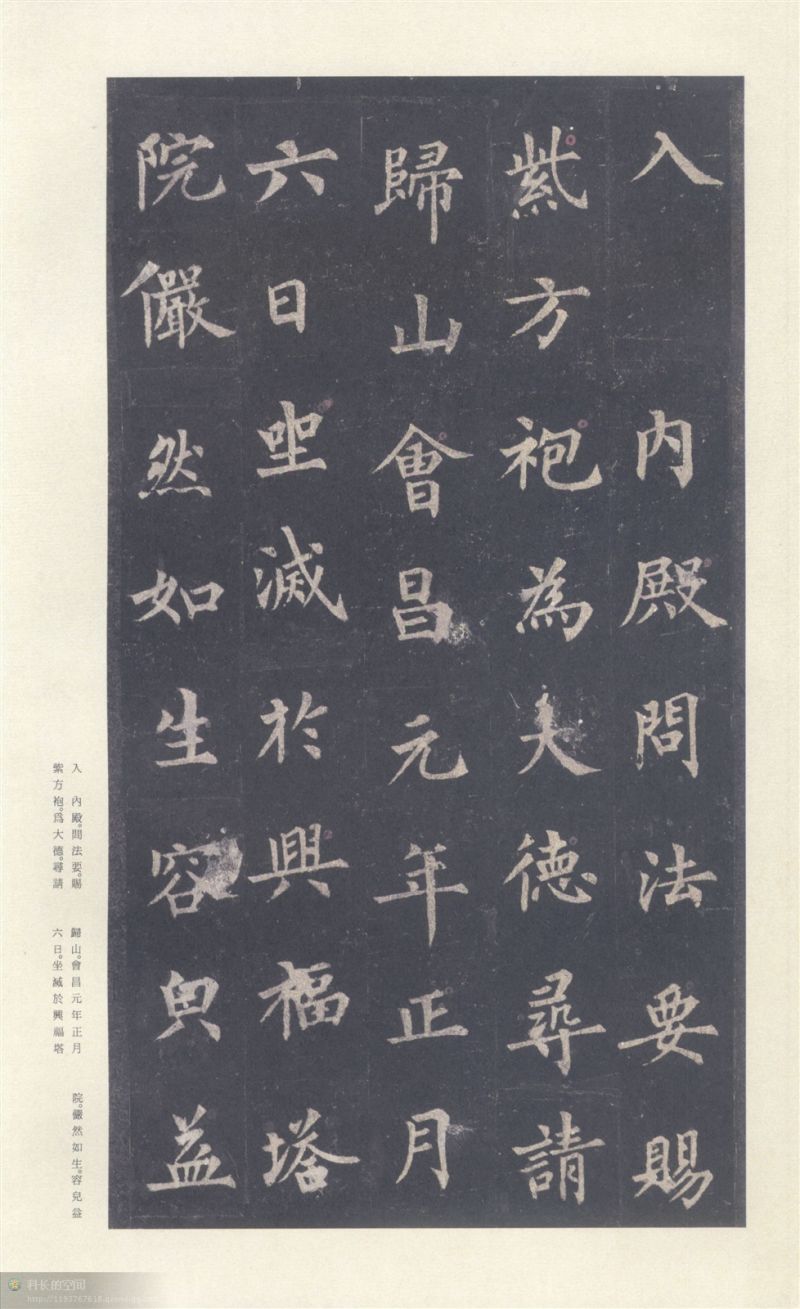 入　内殿問法要賜
紫方袍為大德尋請
歸山會昌元年正月
六日坐滅於興福塔
院儼然如生容皃益
入　內殿。問法要。賜
紫方袍。爲大德。尋請
歸山。會昌元年正月
六日。坐滅於興福塔
院。儼然如生。容皃益
科长的空间